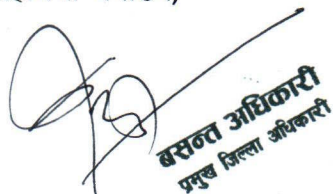 बसन्त अधिकारी
प्रमुख जिल्ला अधिकारी